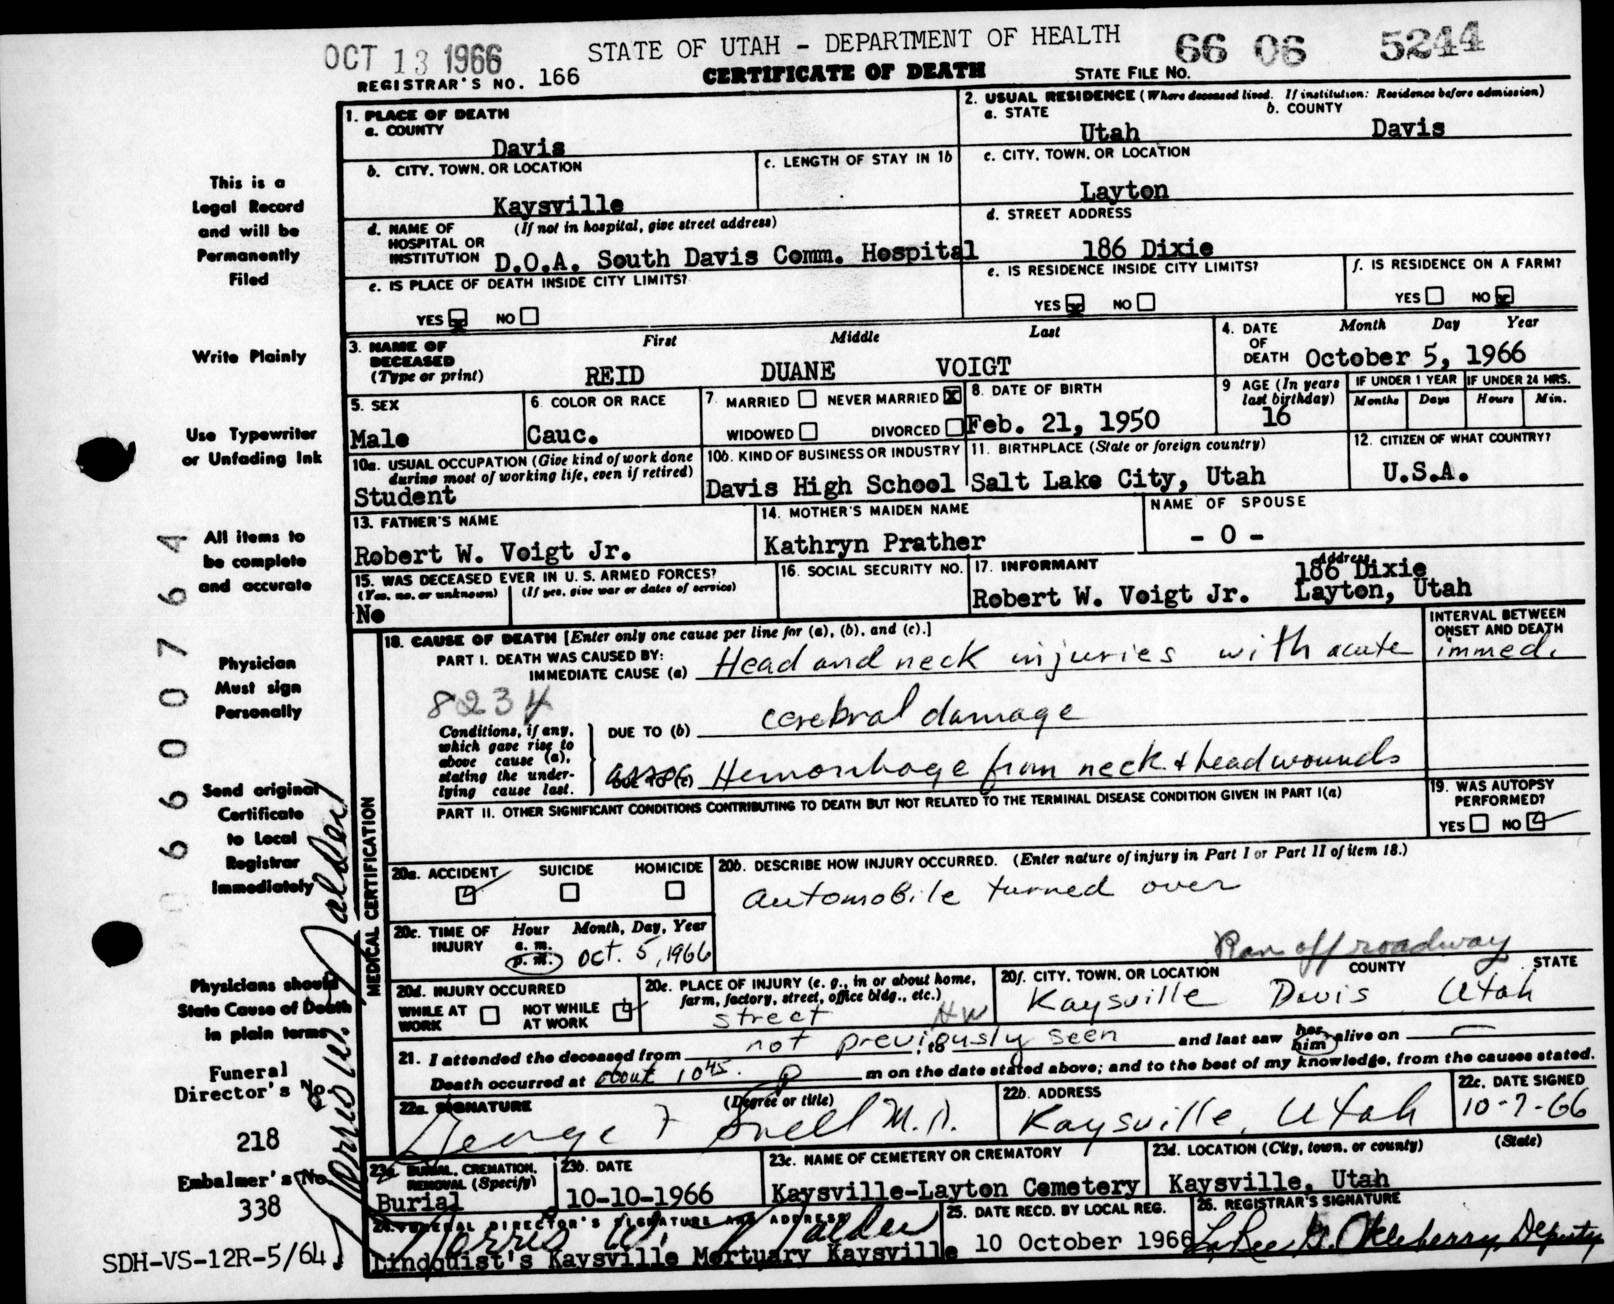 OCT 13 1966
STATE OF UTAH - DEPARTMENT OF HEALTH
66 06 5244
REGISTRAR'S NO. 166
CERTIFICATE OF DEATH
STATE FILE NO.
1. PLACE OF DEATH
a. COUNTY
Davis
2. USUAL RESIDENCE (Where deceased lived. If institution: Residence before admission)
a. STATE
Utah
b. COUNTY
Davis
b. CITY, TOWN, OR LOCATION
Kaysville
c. LENGTH OF STAY IN 1b
c. CITY, TOWN, OR LOCATION
Layton
d. NAME OF HOSPITAL OR INSTITUTION
(If not in hospital, give street address)
D.O.A. South Davis Comm. Hospital
d. STREET ADDRESS
186 Dixie
e. IS PLACE OF DEATH INSIDE CITY LIMITS?
YES NO
e. IS RESIDENCE INSIDE CITY LIMITS?
YES NO
f. IS RESIDENCE ON A FARM?
YES NO
3. NAME OF DECEASED
(Type or print)
First Middle Last
REID DUANE VOIGT
4. DATE OF DEATH
Month Day Year
October 5, 1966
5. SEX
Male
6. COLOR OR RACE
Cauc.
7. MARRIED NEVER MARRIED X
WIDOWED DIVORCED
8. DATE OF BIRTH
Feb. 21, 1950
9 AGE (In years last birthday)
16
IF UNDER 1 YEAR
Months Days
IF UNDER 24 HRS.
Hours Min.
10a. USUAL OCCUPATION (Give kind of work done during most of working life, even if retired)
Student
10b. KIND OF BUSINESS OR INDUSTRY
Davis High School
11. BIRTHPLACE (State or foreign country)
Salt Lake City, Utah
12. CITIZEN OF WHAT COUNTRY?
U.S.A.
13. FATHER'S NAME
Robert W. Voigt Jr.
14. MOTHER'S MAIDEN NAME
Kathryn Prather
NAME OF SPOUSE
- 0 -
15. WAS DECEASED EVER IN U. S. ARMED FORCES?
(Yes, no, or unknown) (If yes, give war or dates of service)
No
16. SOCIAL SECURITY NO.
17. INFORMANT
Robert W. Voigt Jr.
Address
186 Dixie
Layton, Utah
18. CAUSE OF DEATH [Enter only one cause per line for (a), (b), and (c).]
INTERVAL BETWEEN ONSET AND DEATH
PART I. DEATH WAS CAUSED BY:
IMMEDIATE CAUSE (a) Head and neck injuries with acute
immed.
8234
Conditions, if any, which gave rise to above cause (a), stating the underlying cause last.
DUE TO (b) cerebral damage
DUE TO (c) Hemorrhage from neck & head wounds
PART II. OTHER SIGNIFICANT CONDITIONS CONTRIBUTING TO DEATH BUT NOT RELATED TO THE TERMINAL DISEASE CONDITION GIVEN IN PART I(a)
19. WAS AUTOPSY PERFORMED?
YES NO
MEDICAL CERTIFICATION
20a. ACCIDENT SUICIDE HOMICIDE
20b. DESCRIBE HOW INJURY OCCURRED. (Enter nature of injury in Part I or Part II of item 18.)
automobile turned over
Ran off roadway
20c. TIME OF INJURY
Hour Month, Day, Year
a. m.
p. m.
Oct. 5, 1966
20d. INJURY OCCURRED
WHILE AT WORK NOT WHILE AT WORK
20e. PLACE OF INJURY (e. g., in or about home, farm, factory, street, office bldg., etc.)
street HW
20f. CITY, TOWN, OR LOCATION COUNTY STATE
Kaysville Davis Utah
21. I attended the deceased from not previously seen, to and last saw her him alive on
Death occurred at about 10 45 p m on the date stated above; and to the best of my knowledge, from the causes stated.
22a. SIGNATURE (Degree or title)
George F Snell M.D.
22b. ADDRESS
Kaysville, Utah
22c. DATE SIGNED
10-7-66
23a. BURIAL, CREMATION, REMOVAL (Specify)
Burial
23b. DATE
10-10-1966
23c. NAME OF CEMETERY OR CREMATORY
Kaysville-Layton Cemetery
23d. LOCATION (City, town, or county) (State)
Kaysville, Utah
24. FUNERAL DIRECTOR'S SIGNATURE AND ADDRESS
Norris W. Nalder
Lindquist's Kaysville Mortuary Kaysville
25. DATE RECD. BY LOCAL REG.
10 October 1966
26. REGISTRAR'S SIGNATURE
Deputy
This is a
Legal Record
and will be
Permanently
Filed
Write Plainly
Use Typewriter
or Unfading Ink
All items to
be complete
and accurate
Physician
Must sign
Personally
Send original
Certificate
to Local
Registrar
Immediately
Physicians should
State Cause of Death
in plain terms
Funeral
Director's No.
218
Embalmer's No.
338
Norris W. Nalder
SDH-VS-12R-5/64
06600764